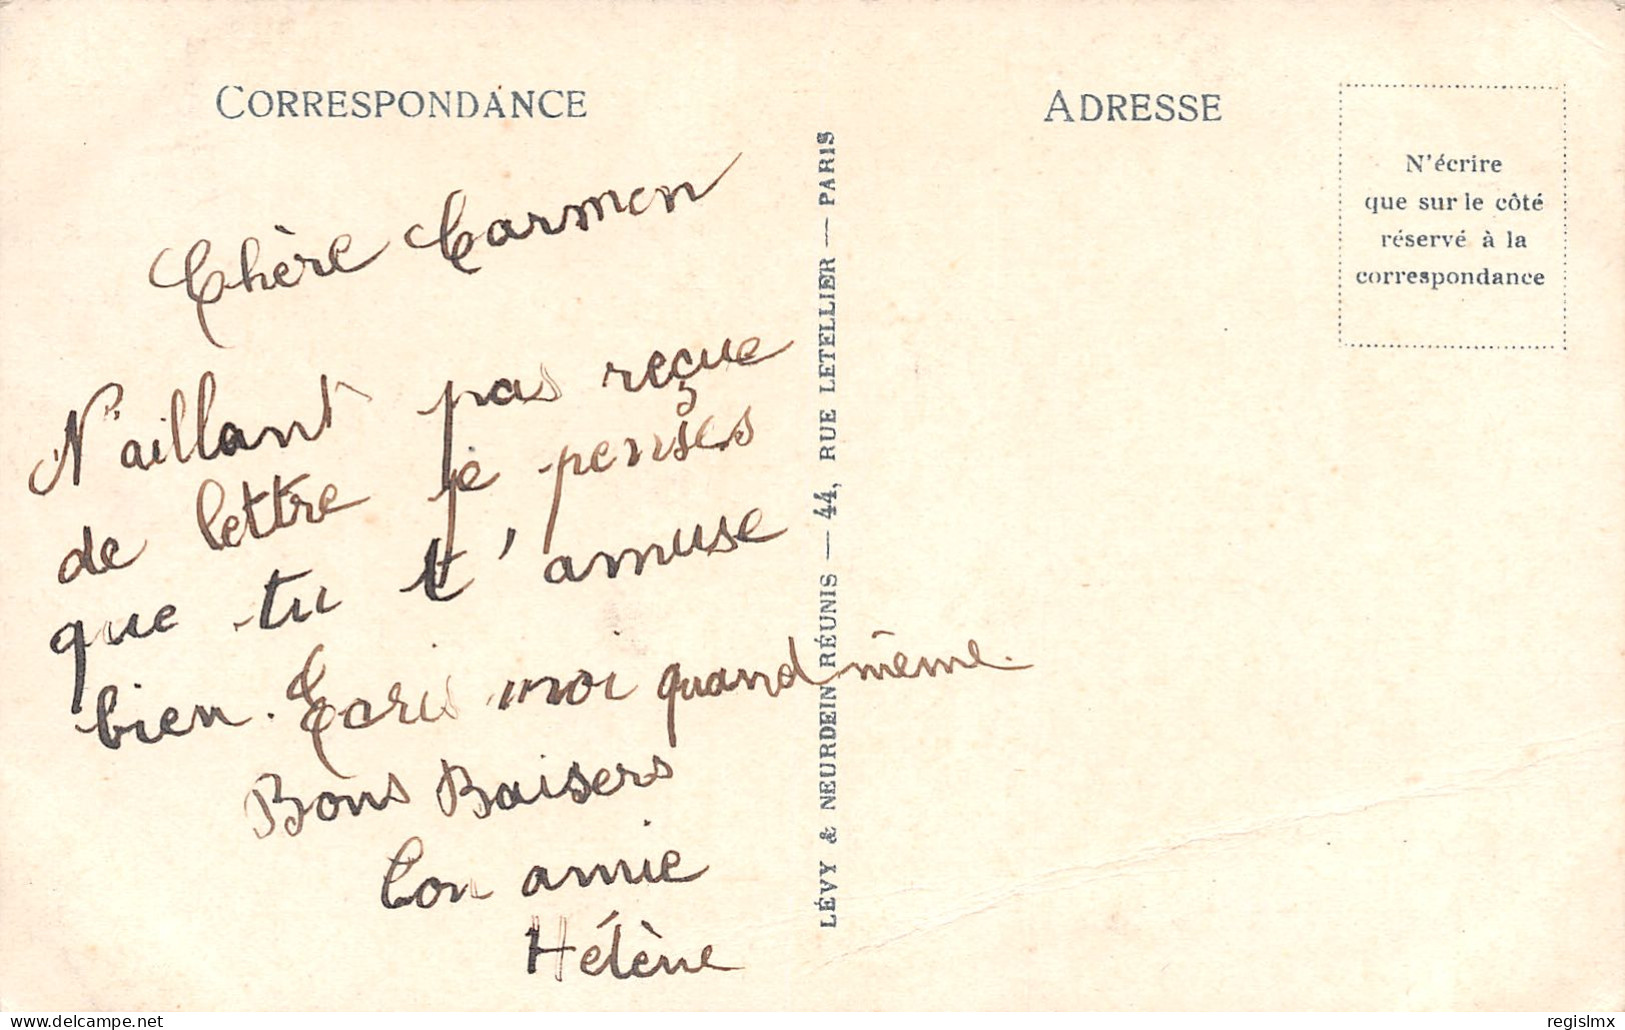 CORRESPONDANCE
Chère Carmen
N'aillant pas reçue
de lettre je penses
que tu t'amuse
bien. Ecris moi quand même.
Bons Baisers
Ton amie
Hélène
LÉVY & NEURDEIN RÉUNIS — 44, RUE LETELLIER — PARIS
ADRESSE
N'écrire
que sur le côté
réservé à la
correspondance
www.delcampe.net
regislmx